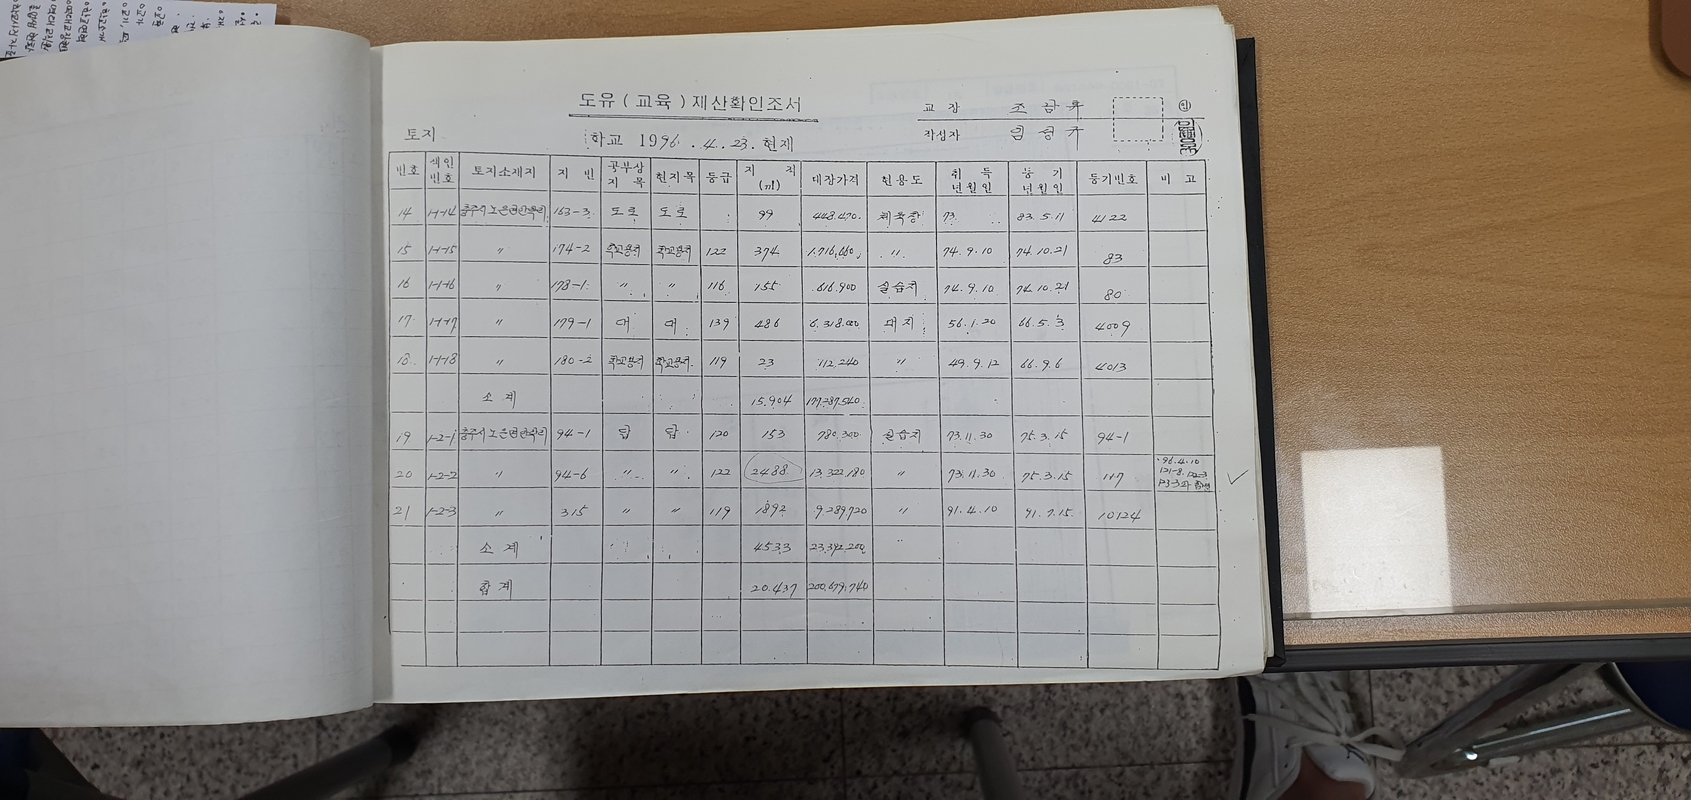 도유 ( 교육 ) 재산확인조서
교 장 조 남 류 ㊞
토지 학교 1996 . 4 . 23 . 현재 작성자
번호 색인번호 토지소재지 지 번 공부상지목 현지목 등급 지 적 (㎡) 대장가격 현용도 취 득 년월일 등 기 년월일 등기번호 비 고
14 1-1-14 충주시 노은면 163-3 도로 도로 99 448.470 체육장 73. 83.5.11 4122
15 1-1-15 〃 174-2 학교용지 학교용지 122 374 1.716.660 〃 74.9.10 74.10.21 83
16 1-1-16 〃 178-1 〃 〃 116 155 616.900 실습지 74.9.10 74.10.21 80
17 1-1-17 〃 179-1 대 대 139 486 6.318.000 대지 56.1.20 66.5.3 4009
18 1-1-18 〃 180-2 학교용지 학교용지 119 23 112.240 〃 49.9.12 66.9.6 4013
소 계 15.904 177.287.540
19 1-2-1 충주시 노은면 94-1 답 답 120 153 780.300 실습지 73.11.30 75.3.15 94-1
20 1-2-2 〃 94-6 〃 〃 122 2488 13.322.180 〃 73.11.30 75.3.15 117 96.4.10
21 1-2-3 〃 315 〃 〃 119 1892 9.289.720 〃 91.4.10 91.7.15 10124
소 계 4533 23.392.200
합 계 20.437 200.679.740